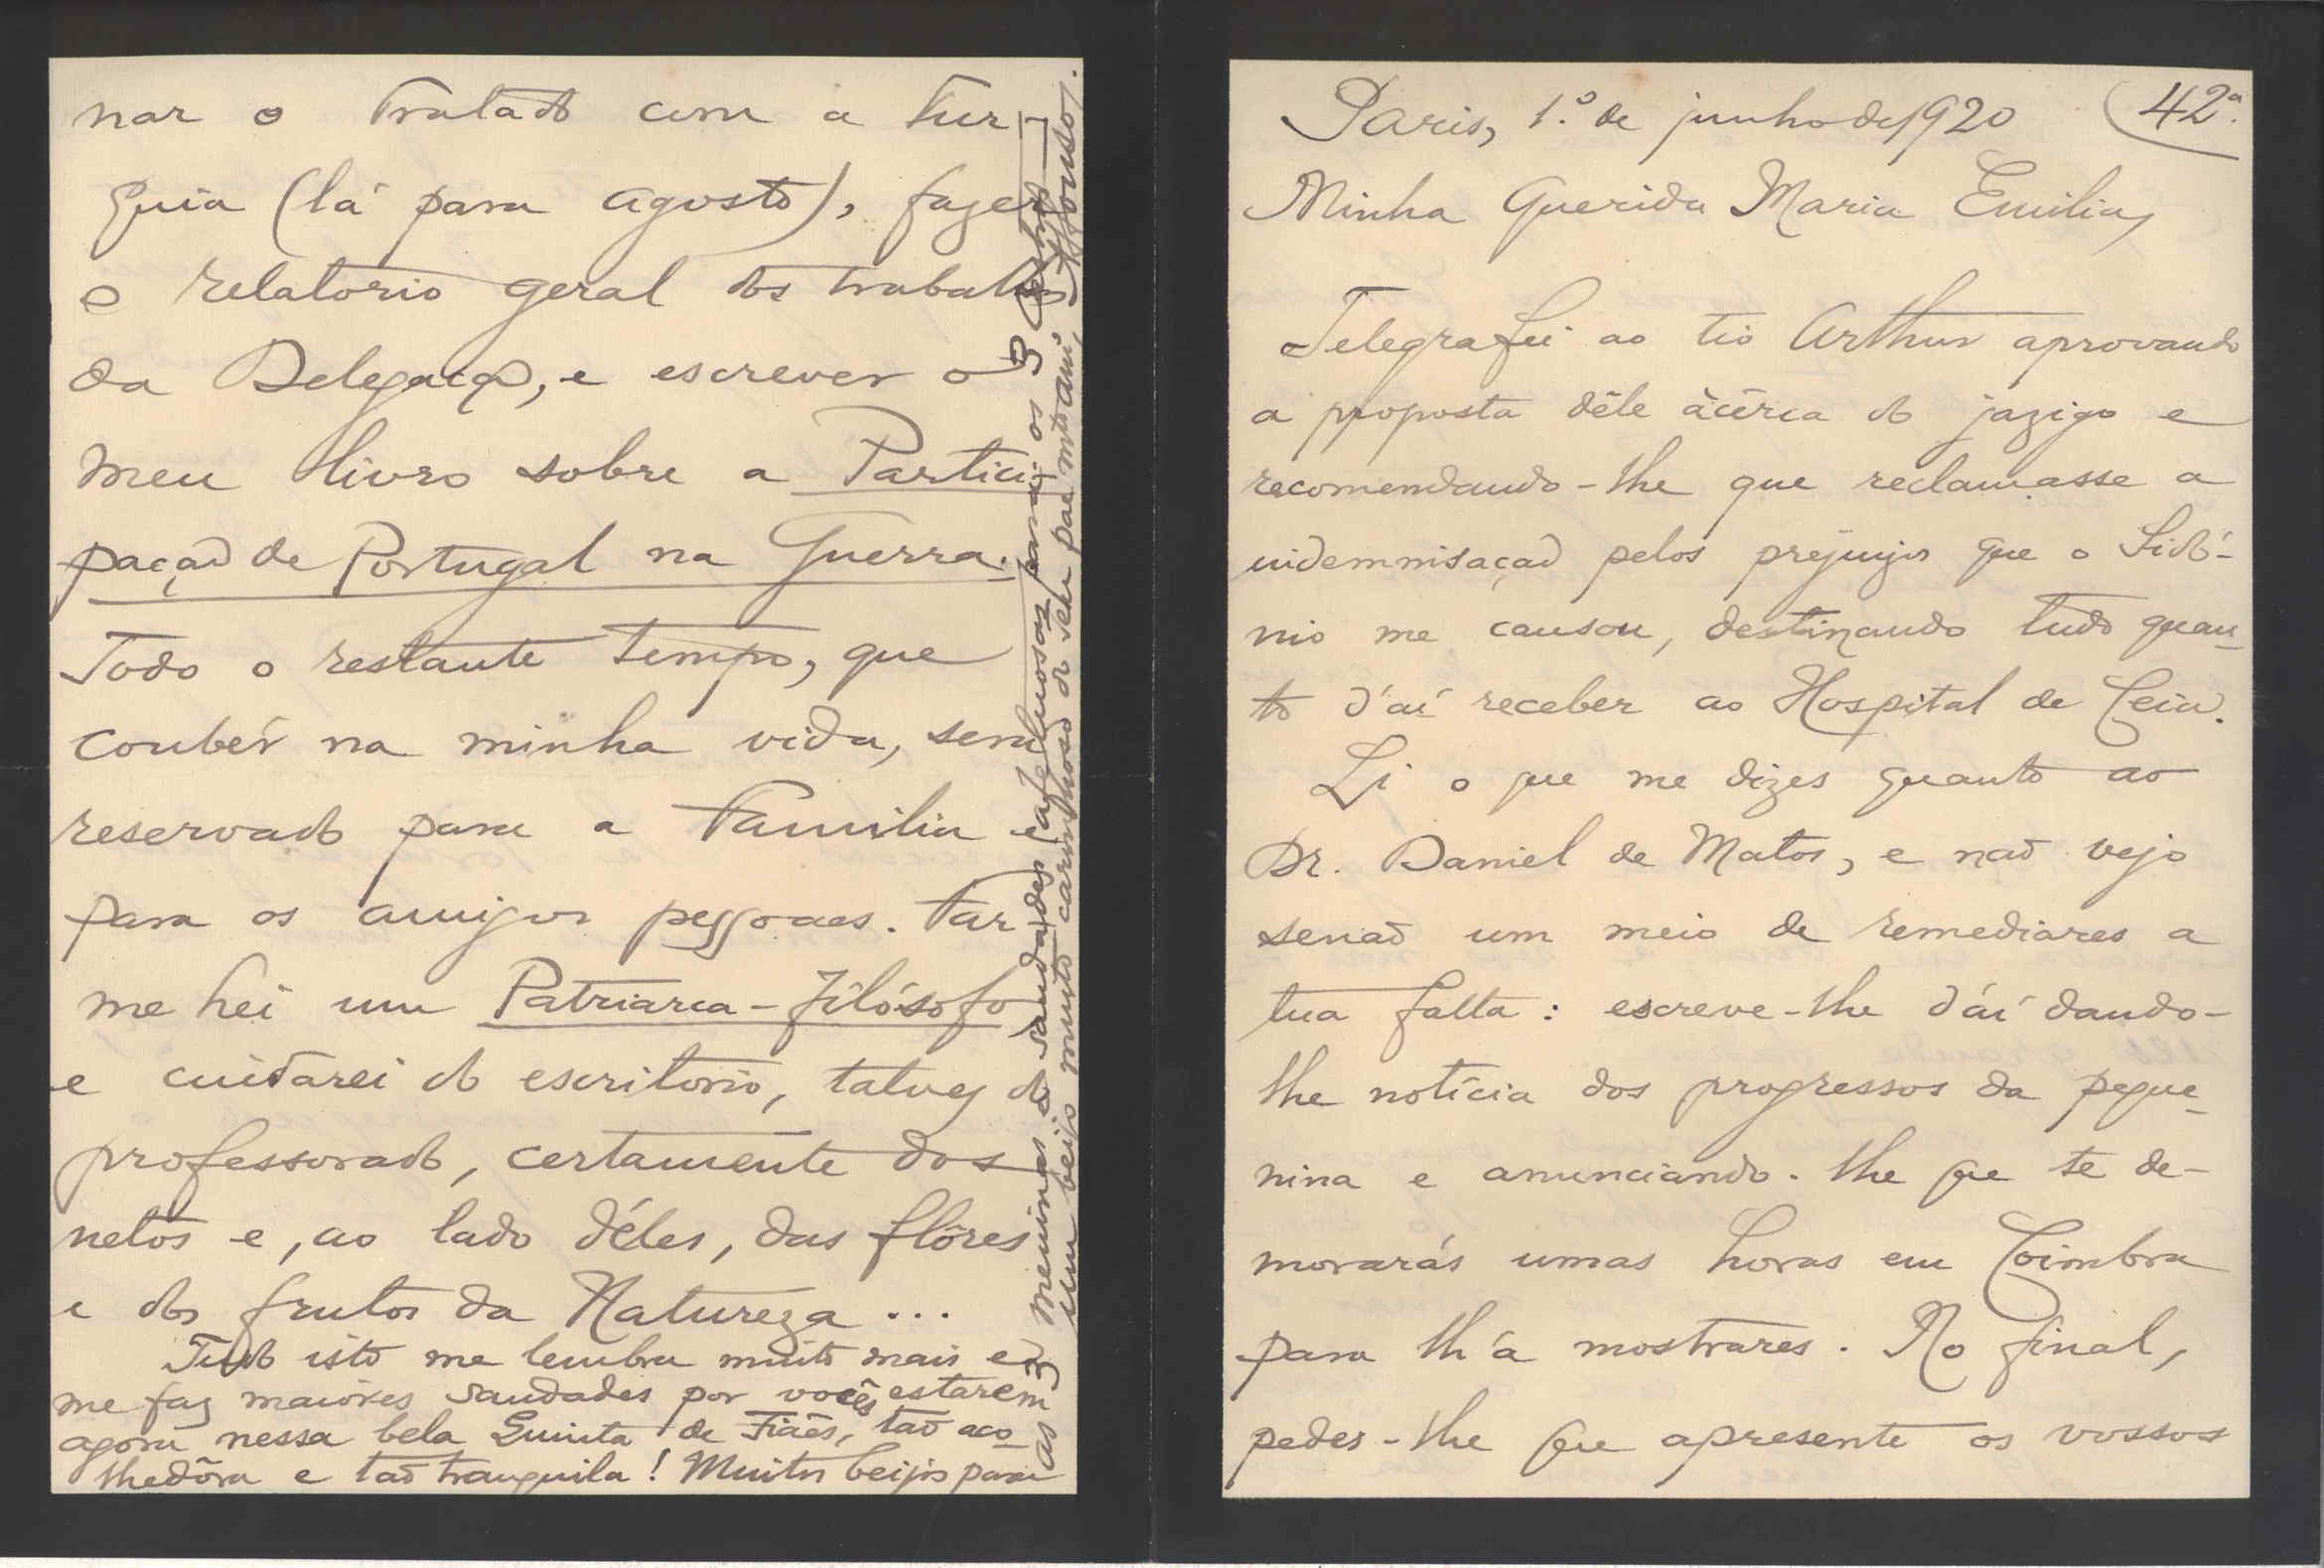 Paris, 1.º de junho de 1920
42ª.
Minha Querida Maria Emilia,
Telegrafei ao tio Arthur aprovando
a proposta dêle àcêrca do jazigo e
recomendando-lhe que reclamasse a
indemnisação pelos prejuizos que o Sidó-
nio me causou, destinando tudo quan-
to d'aí receber ao Hospital de Ceia.
Li o que me dizes quanto ao
Dr. Daniel de Matos, e não vejo
senão um meio de remediares a
tua falta: escreve-lhe d'aí dando-
lhe notícia dos progressos da peque-
nina e anunciando-lhe que te de-
morarás umas horas em Coimbra
para lh'a mostrares. No final,
pedes-lhe que apresente os vossos
nar o Tratado com a Tur-
quia (lá para agosto), fazer
o relatorio geral dos trabalhos
da Delegação, e escrever o
meu livro sobre a Partici-
pação de Portugal na Guerra.
Todo o restante tempo, que
coubér na minha vida, será
reservado para a Familia e
para os amigos pessoaes. Far-
me hei um Patriarca-filósofo
e cuidarei do escritorio, talvez do
professorado, certamente dos
netos e, ao lado dêles, das flôres
e dos frutos da Natureza...
Tudo isto me lembra muito mais e
me faz maiores saudades por vocês estarem
agora nessa bela Quinta de Fiães, tão aco-
lhedôra e tão tranquila! Muitos beijos para
as 3 meninas e saudades afetuosas para os 3
um beijo muito carinhoso do seu pae mto amº, Affonso.